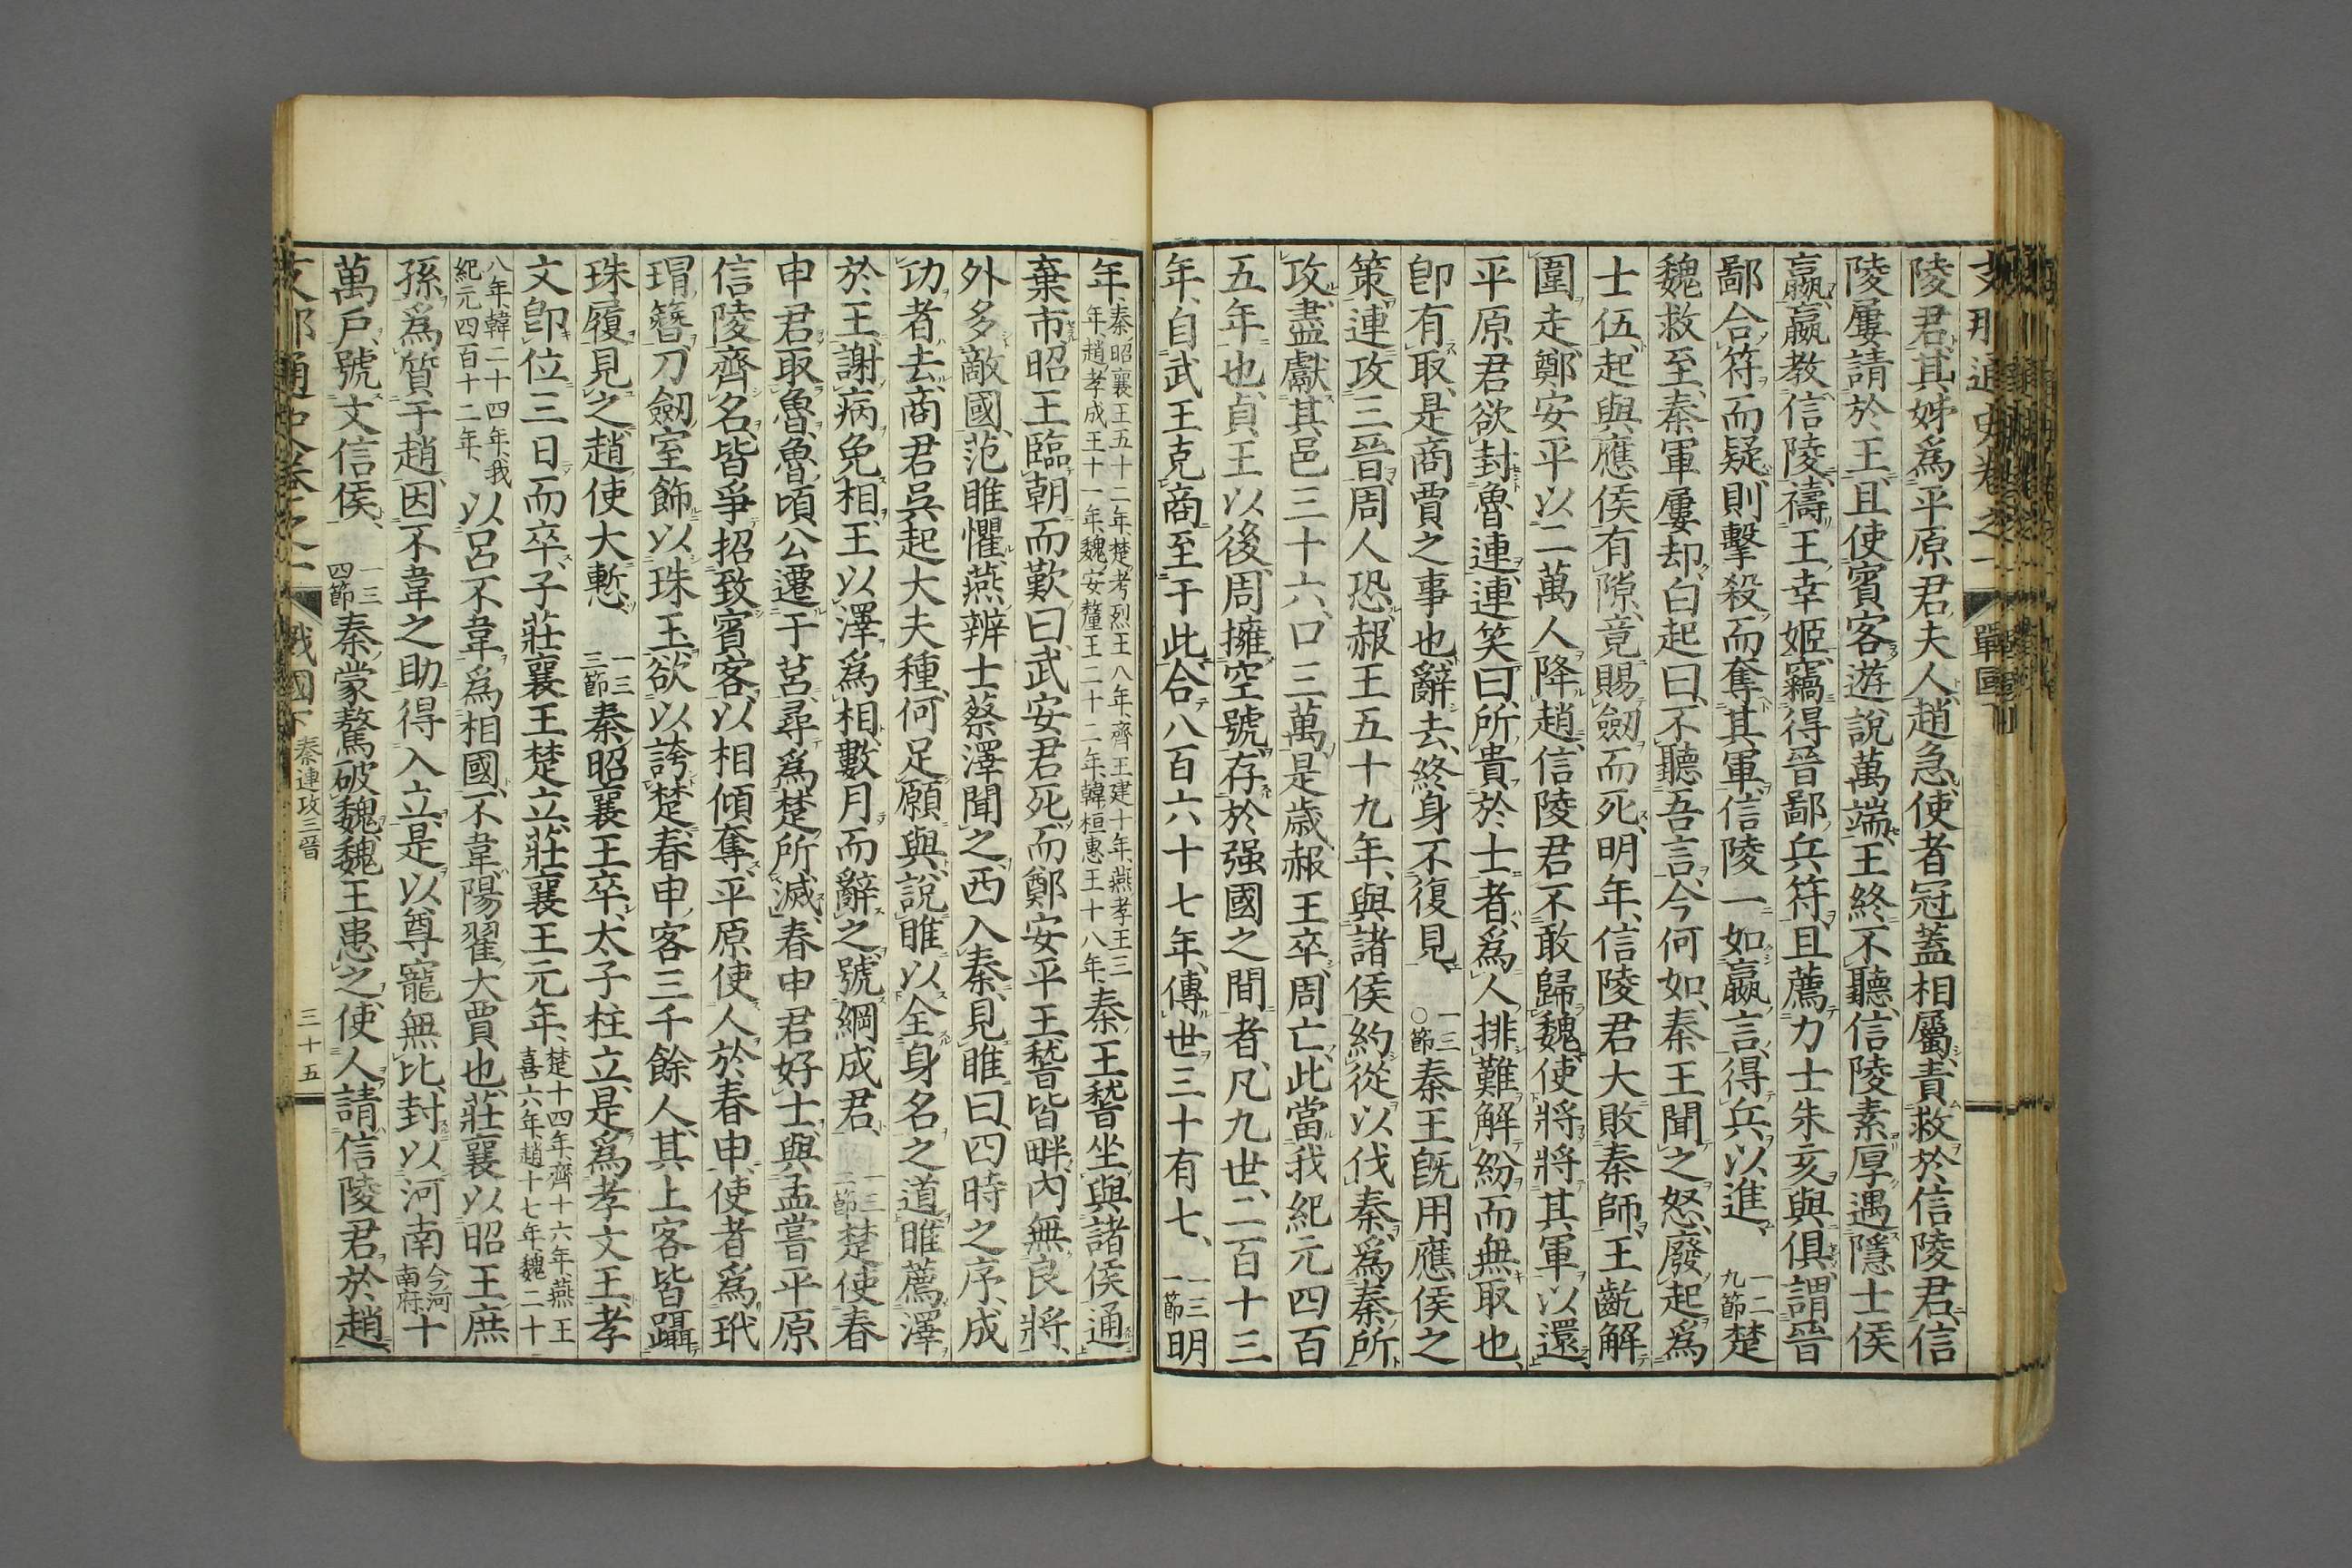 陵君、其姊爲平原君夫人、趙急、使者冠蓋相屬、責救於信陵君、信
陵屢請於王、且使賓客遊說萬端、王終不聽、信陵素厚遇隱士侯
嬴、嬴教信陵、禱王幸姬、竊得晉鄙兵符、且薦力士朱亥與俱、謂晉
鄙合符而疑、則擊殺而奪其軍、信陵一如嬴言、得兵以進、一二九節楚
魏救至、秦軍屢却、白起曰、不聽吾言、今何如、秦王聞之怒、廢起爲
士伍、起與應侯有隙、竟賜劒而死、明年、信陵君大敗秦師、王齕解
圍走、鄭安平以二萬人降趙、信陵君不敢歸魏、使將將其軍以還、
平原君欲封魯連、連笑曰、所貴於士者、爲人排難解紛而無取也、
卽有取、是商賈之事也、辭去、終身不復見、一三〇節秦王旣用應侯之
策、連攻三晉、周人恐、赧王五十九年、與諸侯約從以伐秦、爲秦所
攻、盡獻其邑三十六、口三萬、是歲、赧王卒、周亡、此當我紀元四百
五年也、貞王以後、周擁空號、存於强國之間者、凡九世、二百十三
年、自武王克商至于此、合八百六十七年、傳世三十有七、一三一節明
年、秦昭襄王五十二年、楚考烈王八年、齊王建十年、燕孝王三年、趙孝成王十一年、魏安釐王二十二年、韓桓惠王十八年、秦王嵇坐與諸侯通
棄市、昭王臨朝而歎曰、武安君死、而鄭安平王嵇皆畔、內無良將、
外多敵國、范睢懼、燕辨士蔡澤聞之、西入秦、見睢曰、四時之序、成
功者去、商君吳起大夫種、何足願與、說睢以全身名之道、睢薦澤
於王、謝病免相、王以澤爲相、數月而辭之、號綱成君、一三二節楚使春
申君取魯、魯頃公遷于莒、尋爲楚所滅、春申君好士、與孟嘗平原
信陵齊名、皆爭招致賓客、以相傾奪、平原使人於春申、使者爲玳
瑁簪、刀劒室飾以珠玉、欲以誇楚、春申客三千餘人、其上客皆躡
珠履見之、趙使大慙、一三三節秦昭襄王卒、太子柱立、是爲孝文王、孝
文卽位三日而卒、子莊襄王楚立、莊襄王元年、楚十四年、齊十六年、燕王喜六年、趙十七年、魏二十
八年、韓二十四年、我紀元四百十二年、以呂不韋爲相國、不韋陽翟大賈也、莊襄以昭王庶
孫爲質于趙、因不韋之助得入立、是以尊寵無比、封以河南今河南府、十
萬戶、號文信侯、一三四節秦蒙驁破魏、魏王患之、使人請信陵君於趙
支那通史卷之一 戰國下 秦連攻三晉 三十五